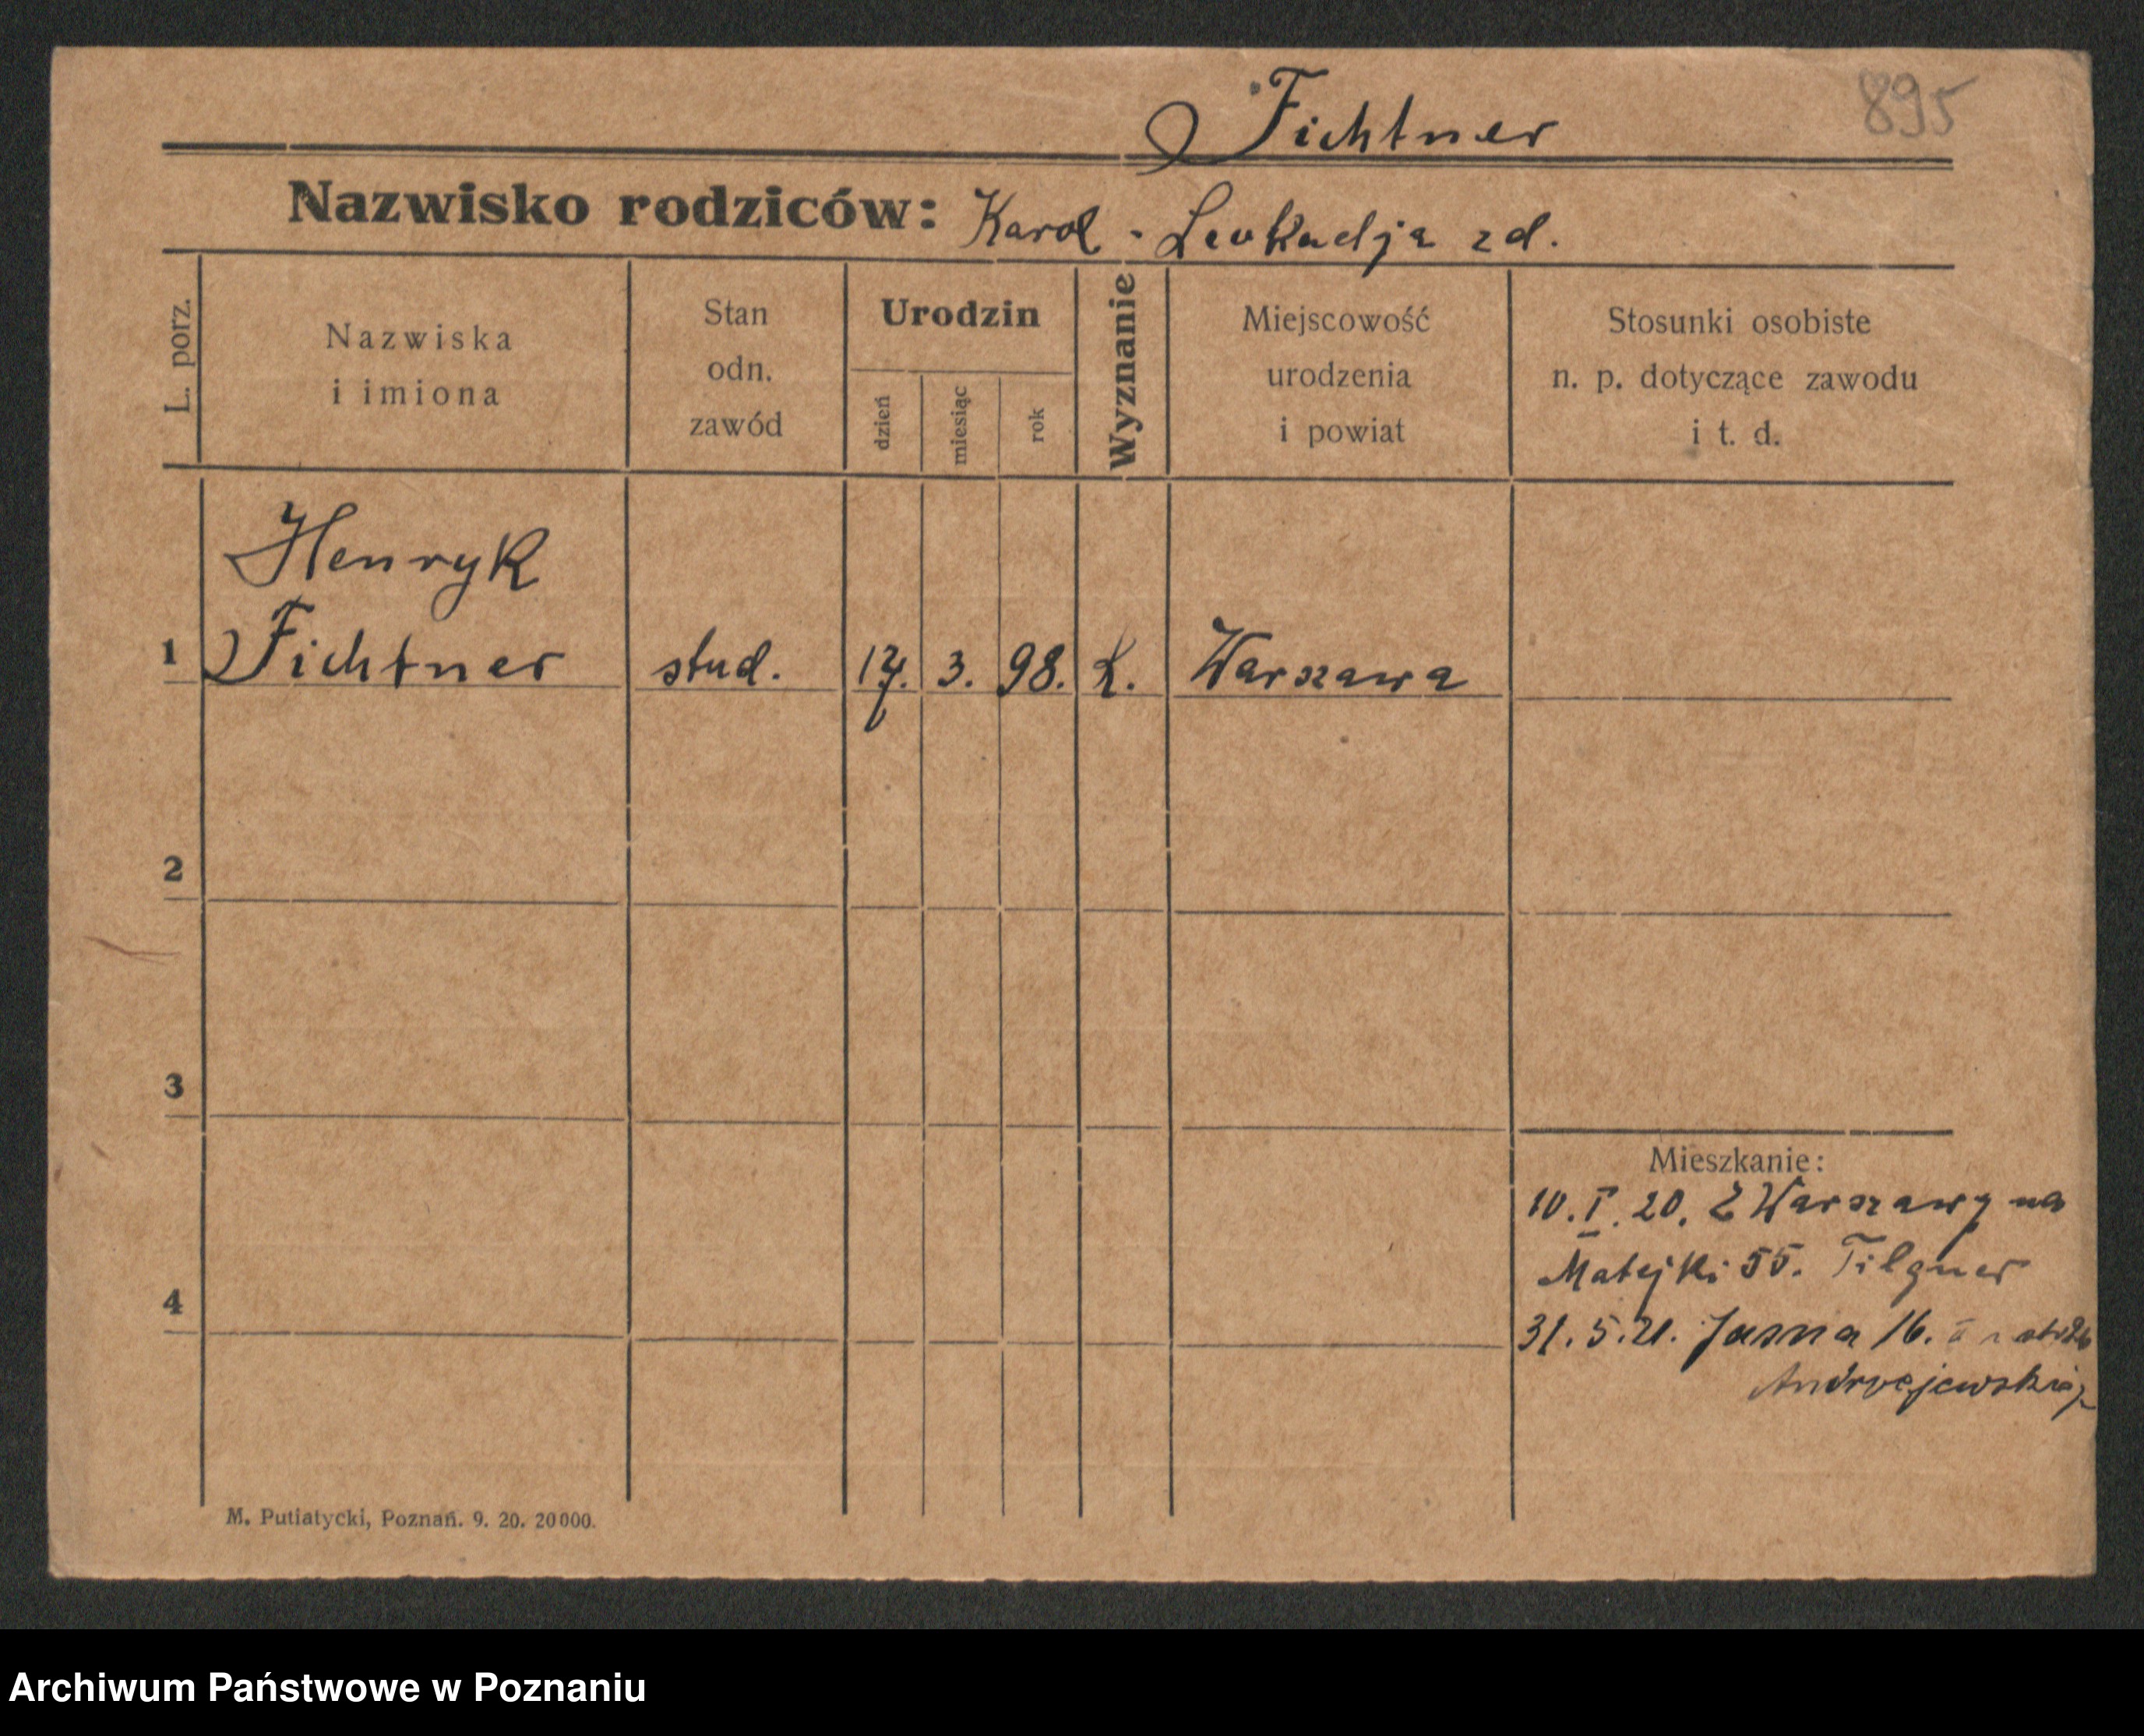 895
Fichtner
Nazwisko rodziców: Karol - Leokadja zd.
L. porz.
Nazwiska
i imiona
Stan
odn.
zawód
Urodzin
dzień
miesiąc
rok
Wyznanie
Miejscowość
urodzenia
i powiat
Stosunki osobiste
n. p. dotyczące zawodu
i t. d.
Henryk
1 Fichtner stud. 17. 3. 98. k. Warszawa
2
3
4
Mieszkanie:
10. I. 20. Z Warszawy na
Matejki 55. Tilgner
31. 5. 21. Jasna 16.
Andrzejewskiej
M. Putiatycki, Poznań. 9. 20. 20000.
Archiwum Państwowe w Poznaniu